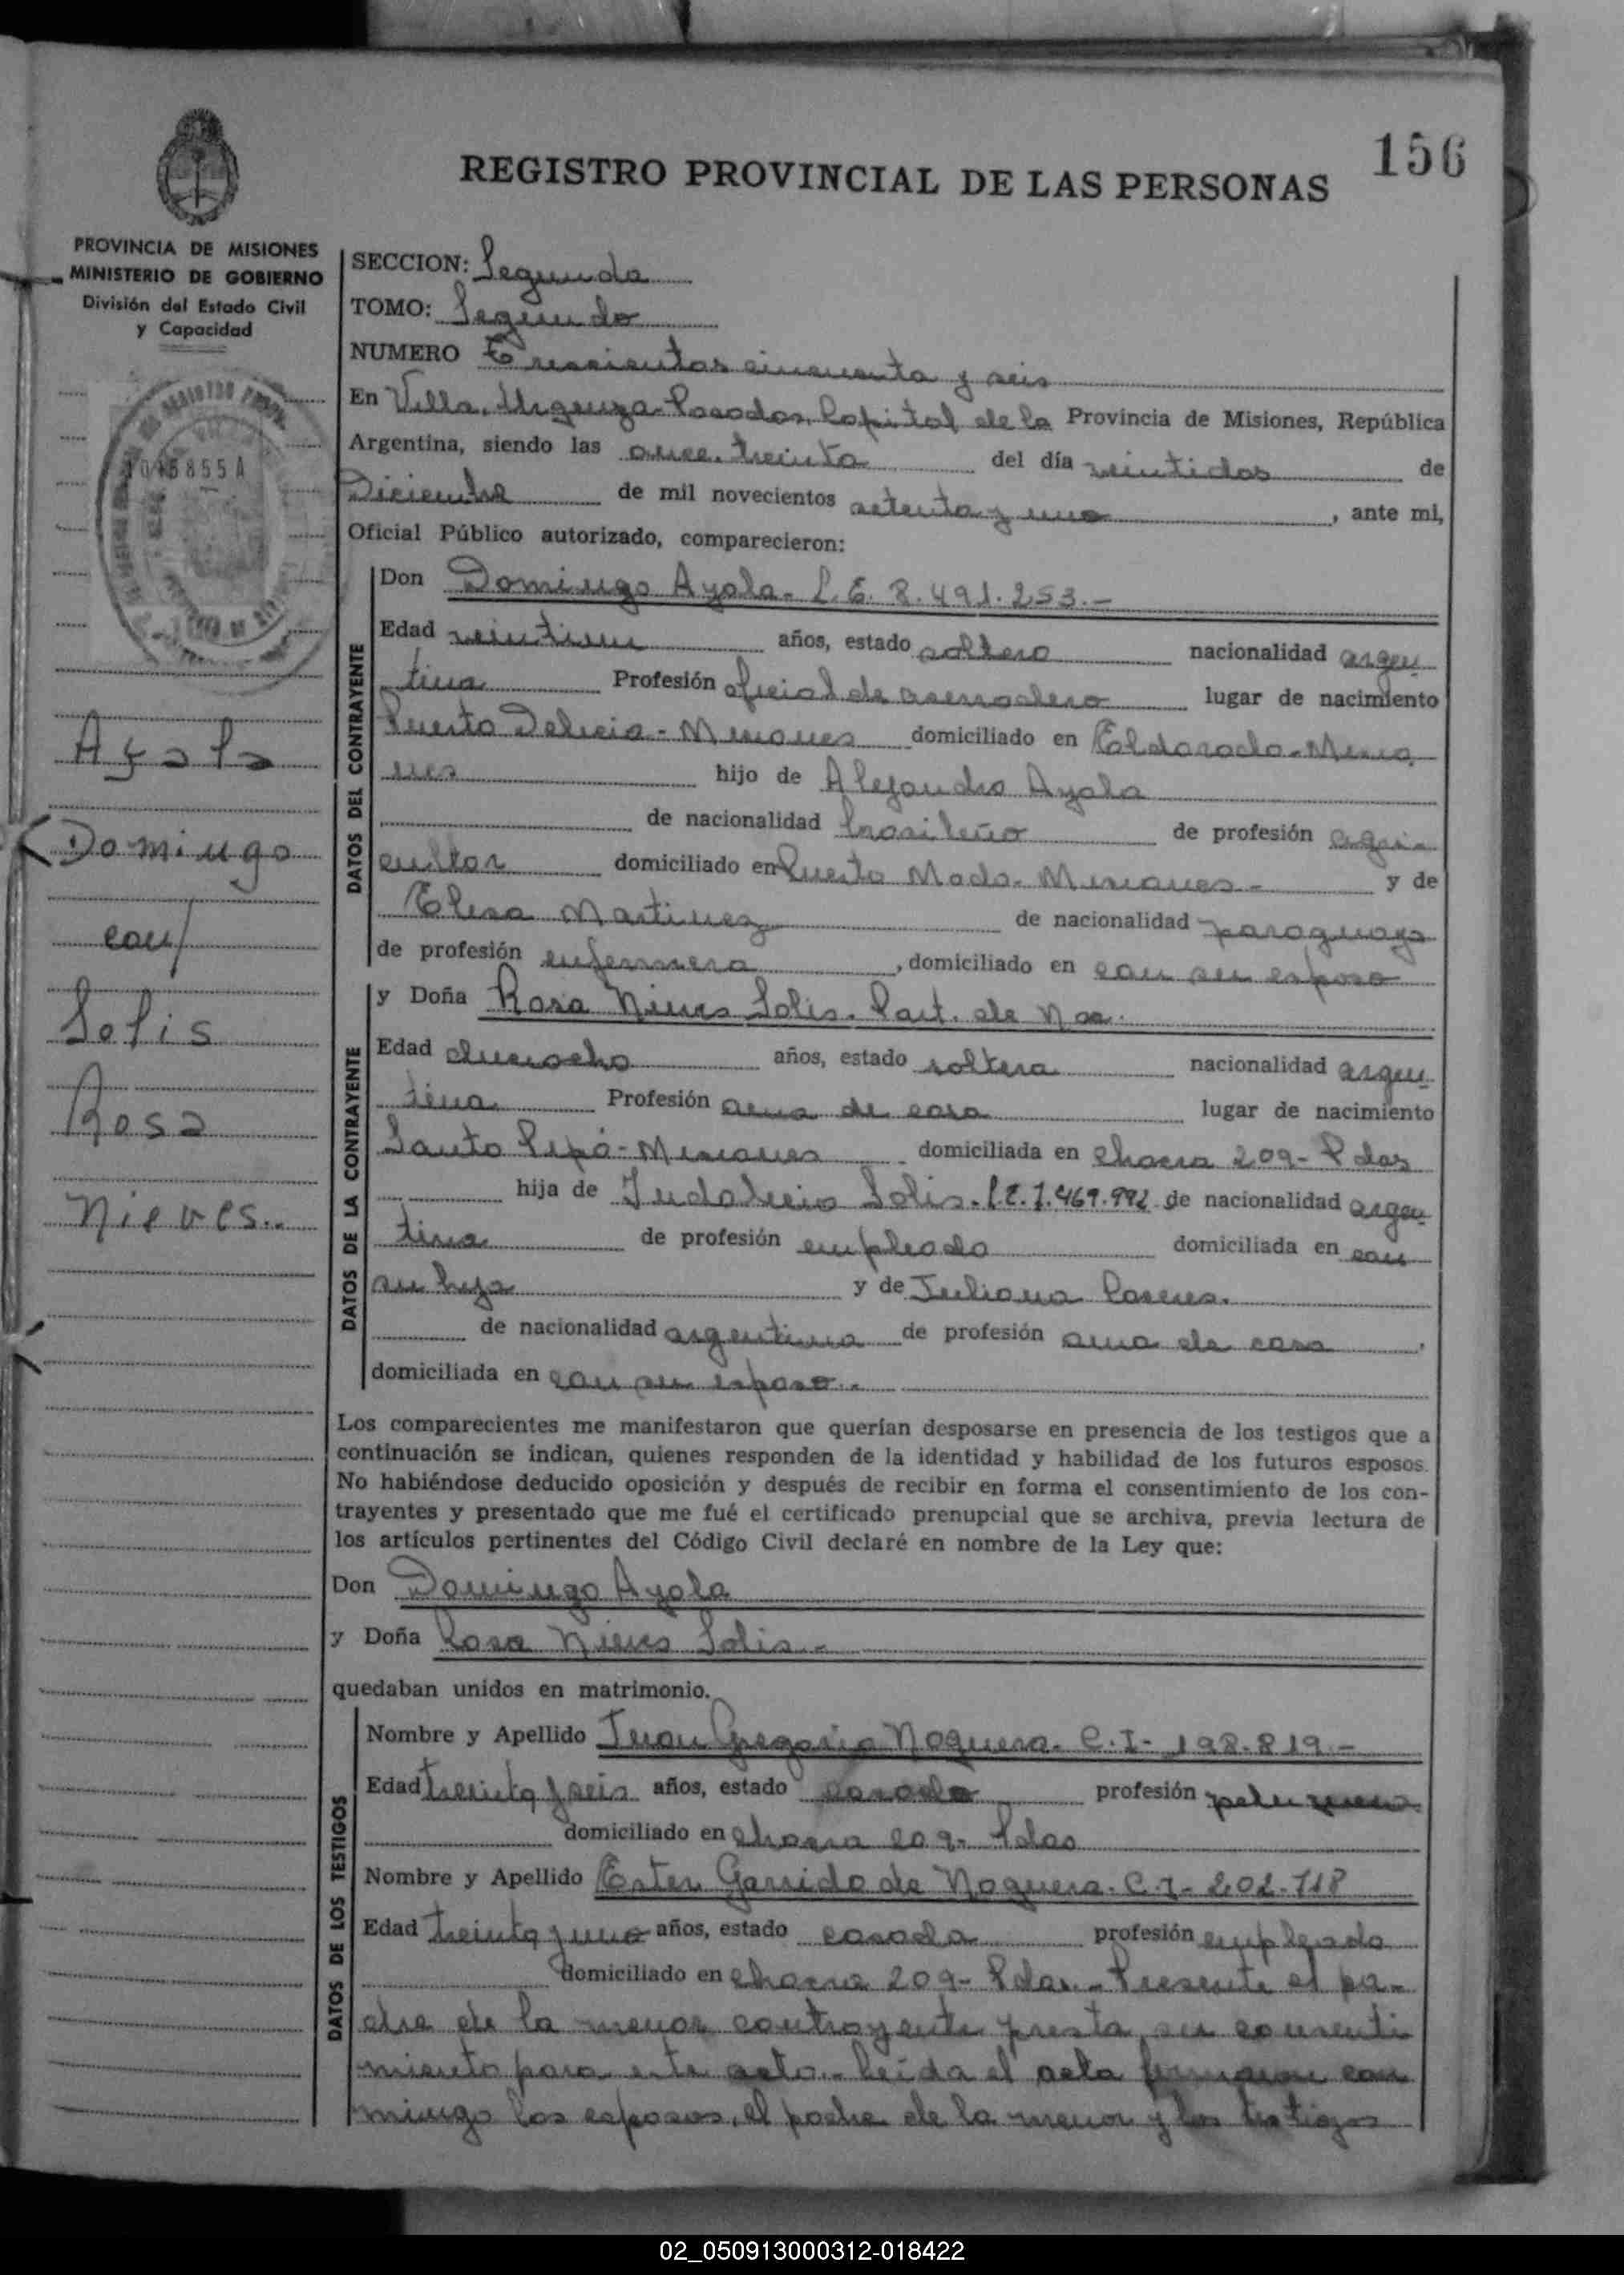 156
REGISTRO PROVINCIAL DE LAS PERSONAS
PROVINCIA DE MISIONES
MINISTERIO DE GOBIERNO
División del Estado Civil
y Capacidad
SECCION: Segunda
TOMO: Segundo
NUMERO Trescientos cincuenta y seis
En Villa Urquiza-Posadas, Capital de la Provincia de Misiones, República
Argentina, siendo las once treinta del día veintidos de
Diciembre de mil novecientos setenta y uno, ante mi,
Oficial Público autorizado, comparecieron:
DATOS DEL CONTRAYENTE
Don Domingo Ayala- L.E. 8.491.253.-
Edad veintiun años, estado soltero nacionalidad argen
tina Profesión oficial de aserradero lugar de nacimiento
Puerto Delicia- Misiones domiciliado en Eldorado-Misio
nes hijo de Alejandro Ayala
de nacionalidad brasileño de profesión agri-
cultor domiciliado en Puerto Mado- Misiones- y de
Elisa Martinez de nacionalidad paraguaya
de profesión enfermera, domiciliado en con su esposo
DATOS DE LA CONTRAYENTE
y Doña Rosa Nieves Solis. Part. de Nac.
Edad dieciocho años, estado soltera nacionalidad argen
tina Profesión ama de casa lugar de nacimiento
Santo Pipó-Misiones domiciliada en chacra 209- Pdas
hija de Indalecio Solis. L.E. 7.469.992 de nacionalidad argen
tina de profesión empleado domiciliada en con
su hija y de Juliana
de nacionalidad argentina de profesión ama de casa,
domiciliada en con su esposo.-
Los comparecientes me manifestaron que querían desposarse en presencia de los testigos que a
continuación se indican, quienes responden de la identidad y habilidad de los futuros esposos.
No habiéndose deducido oposición y después de recibir en forma el consentimiento de los con-
trayentes y presentado que me fué el certificado prenupcial que se archiva, previa lectura de
los artículos pertinentes del Código Civil declaré en nombre de la Ley que:
Don Domingo Ayala
y Doña Rosa Nieves Solis-
quedaban unidos en matrimonio.
DATOS DE LOS TESTIGOS
Nombre y Apellido Juan Gregorio Noguera- C.I- 198.819-
Edad treinta y seis años, estado casado profesión
domiciliado en chacra 209- Pdas
Nombre y Apellido Ester Garrido de Noguera- C.I- 202.718
Edad treinta y uno años, estado casada profesión empleada
domiciliado en chacra 209- Pdas.- Presente el pa-
dre de la menor contrayente presta su consenti
miento para este acto- Leída el acta firmaron con
migo los esposos, el padre de la menor y los testigos
1045855A
Ayala
Domingo
con/
Solis
Rosa
Nieves..
02_050913000312-018422